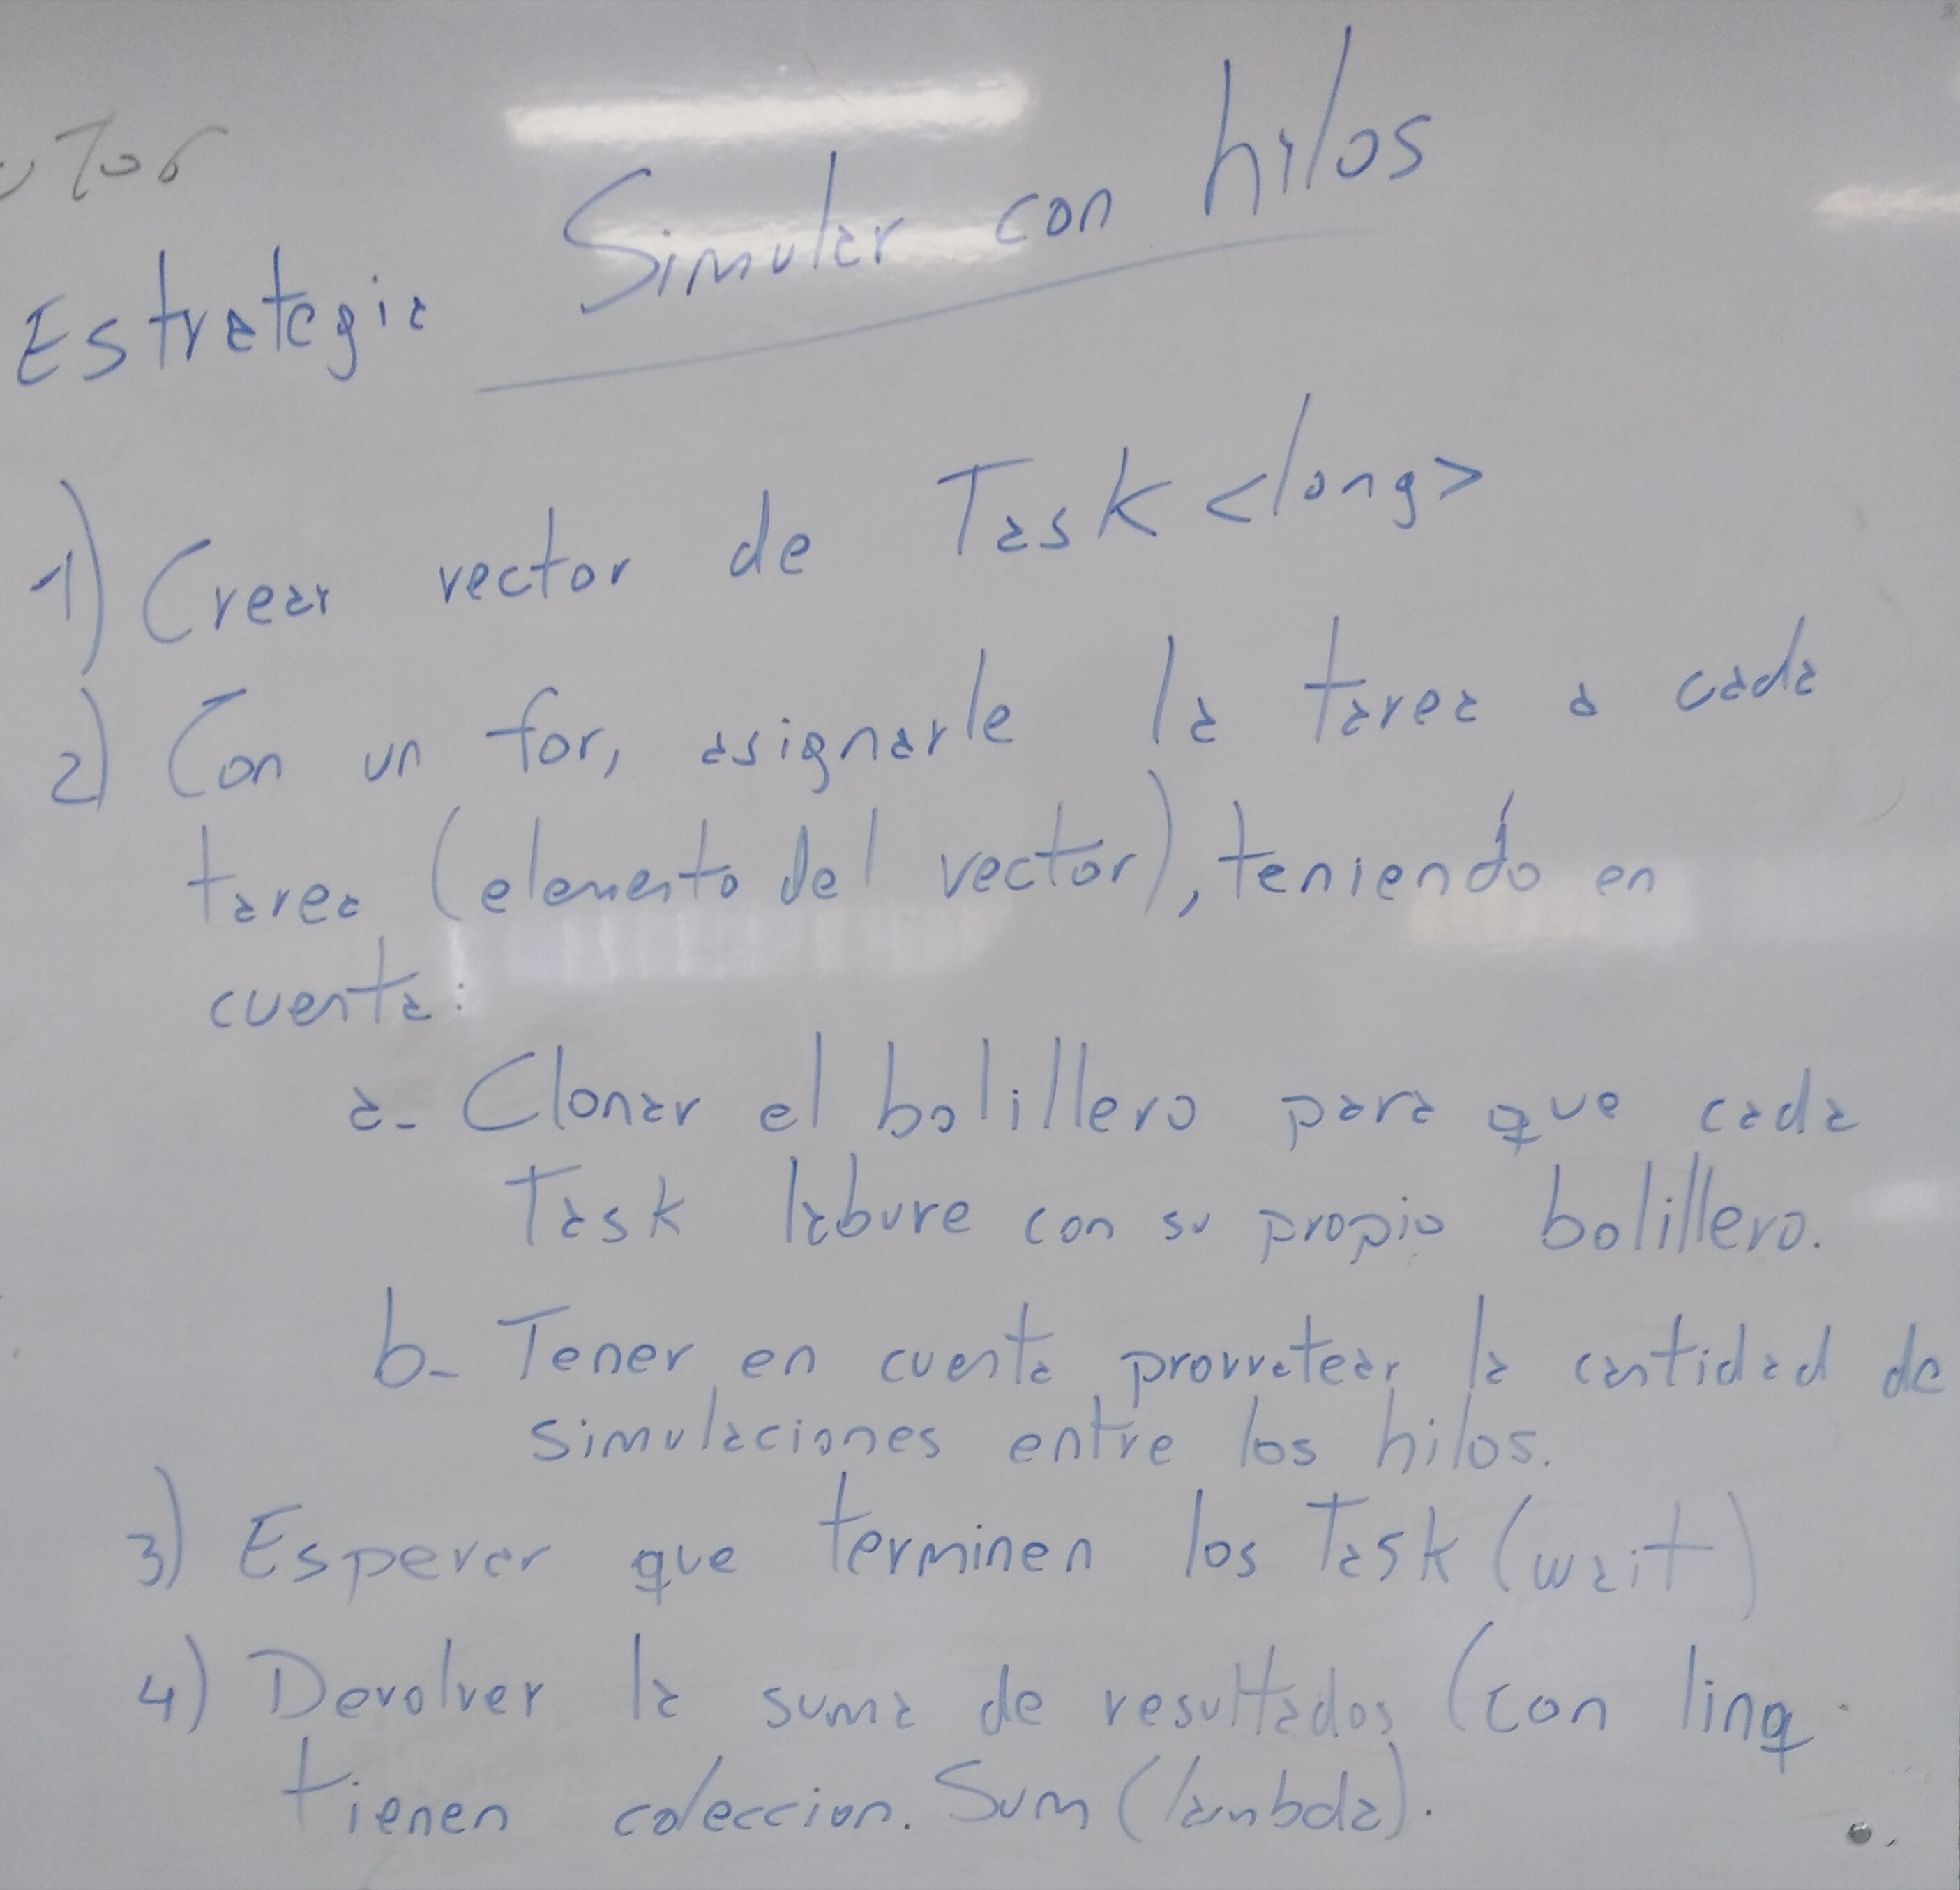 Estrategia Simular con hilos
1) Crear vector de Task <long>
2) Con un for, asignarle la tarea a cada
tarea (elemento del vector), teniendo en
cuenta:
a- Clonar el bolillero para que cada
Task labure con su propio bolillero.
b- Tener en cuenta prorratear la cantidad de
simulaciones entre los hilos.
3) Esperar que terminen los Task (wait)
4) Devolver la suma de resultados (con linq
tienen coleccion. Sum (lambda).